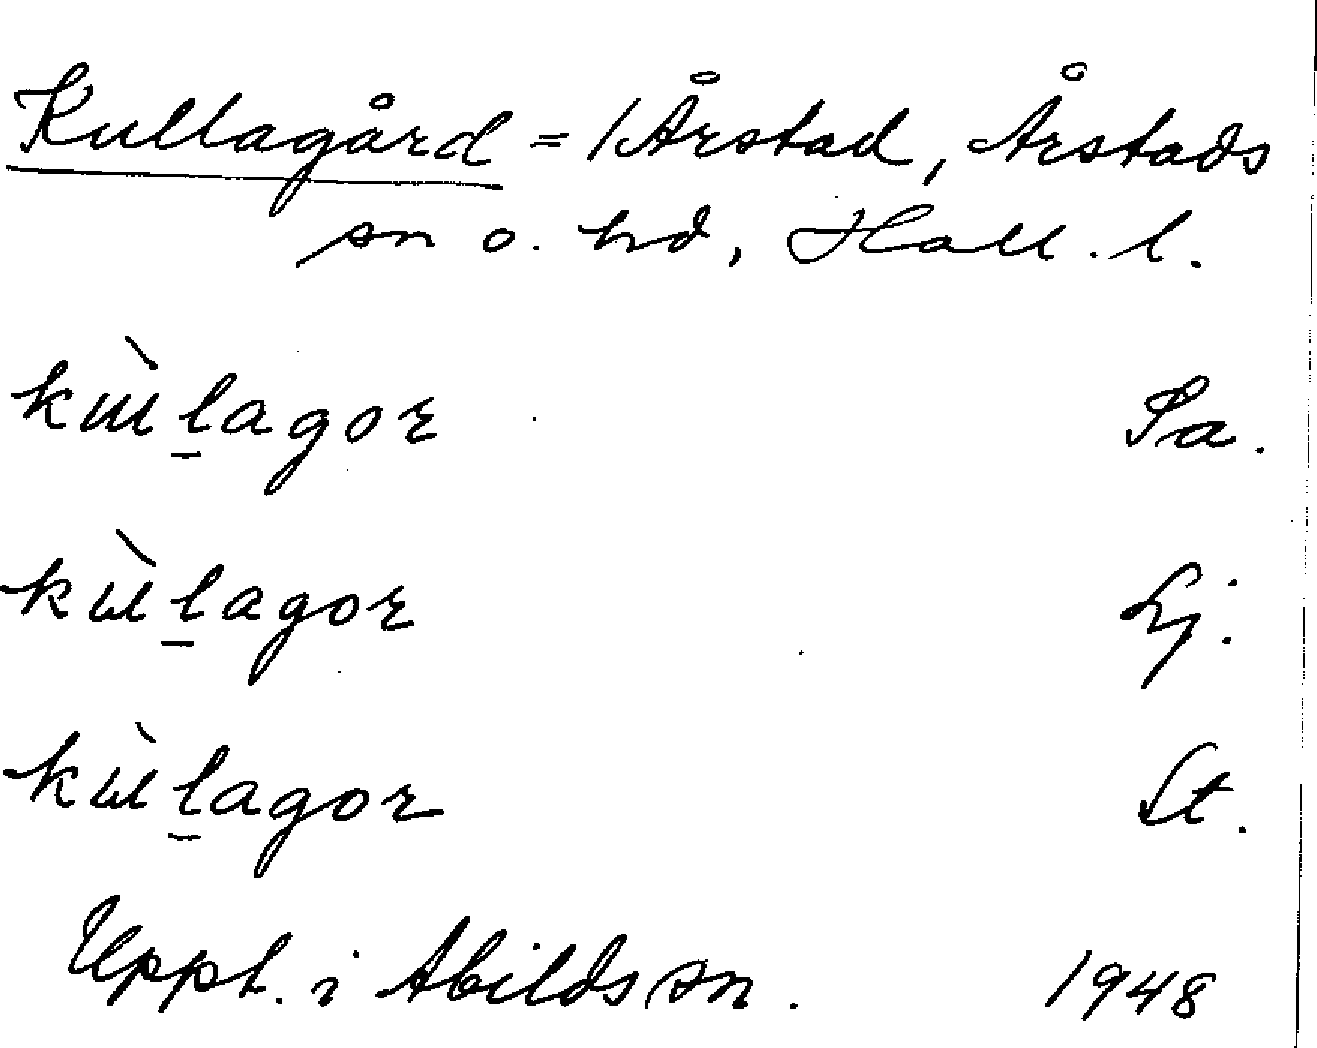 Kullagård = 1 Årstad, Årstads
sn o. hd, Hall. l.
kùl̲agor Sa.
kùl̲agor Lj.
kùl̲agor St.
Uppt. i Abilds sn. 1948